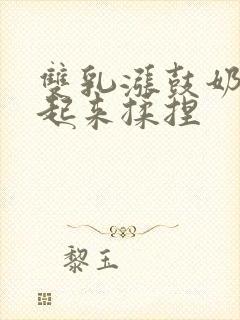 雙乳漲鼓奶
起来揉捏
黎玉